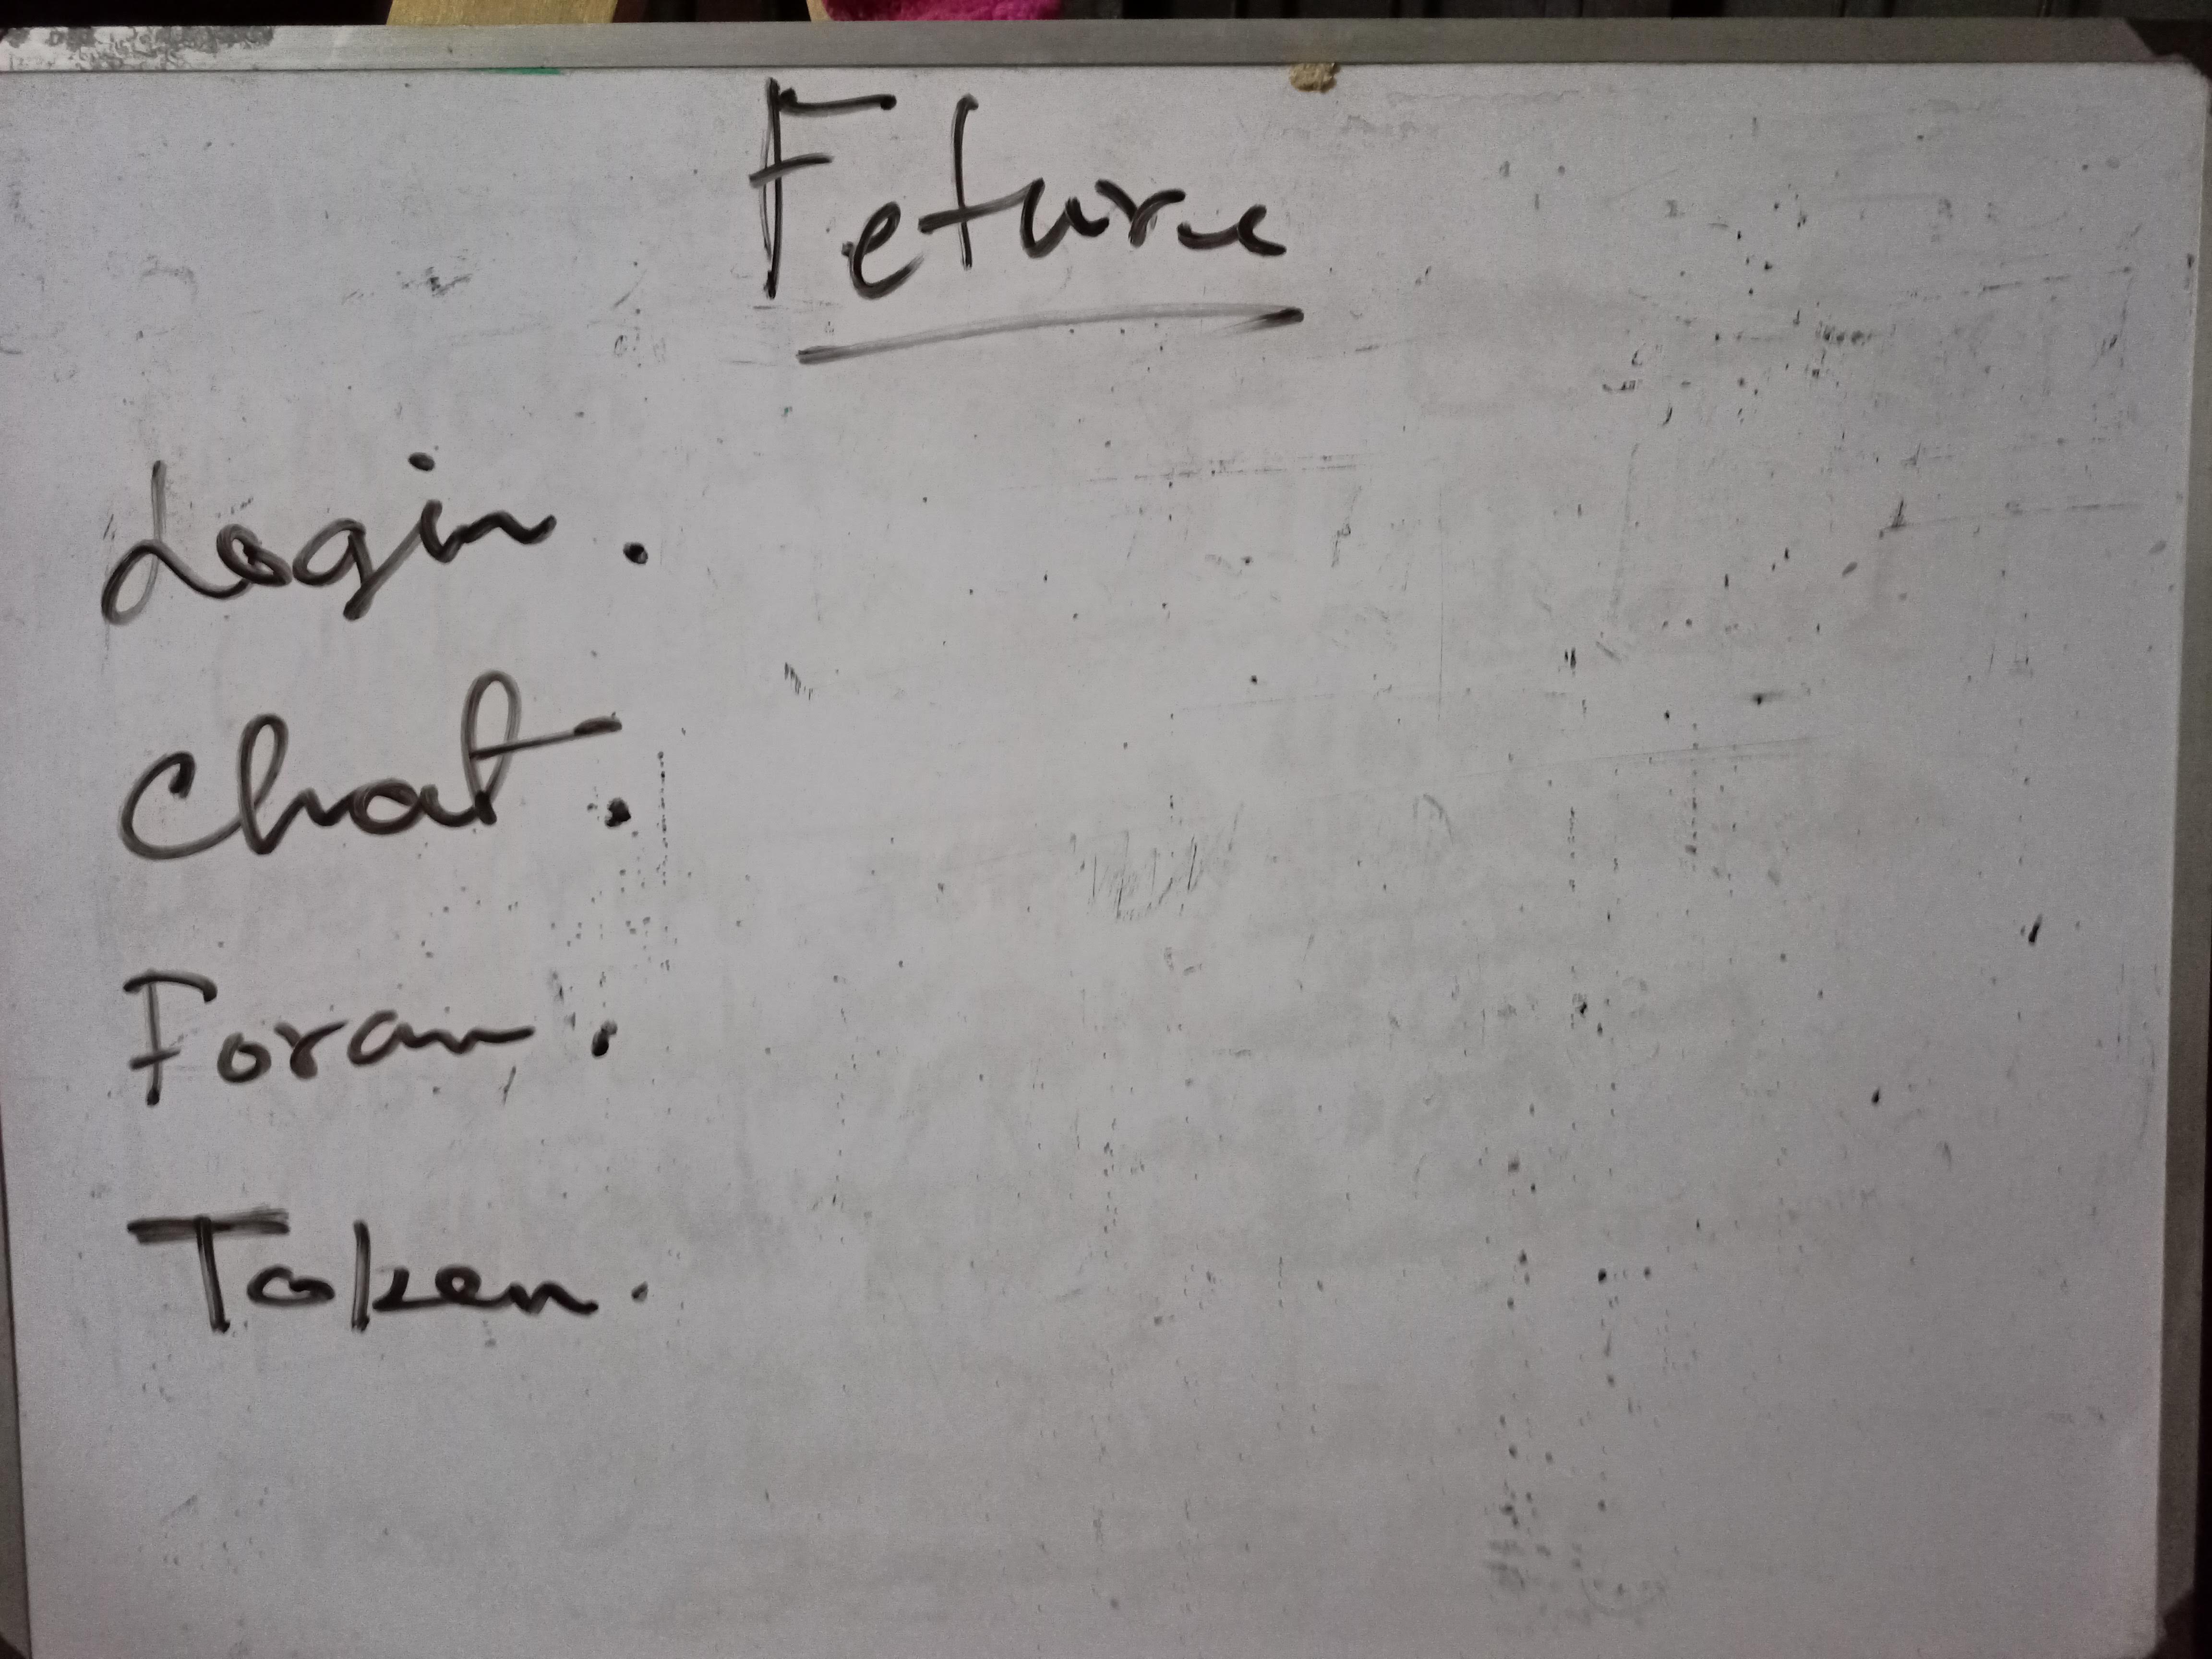 Feture
Login.
Chat.
Foram.
Token.